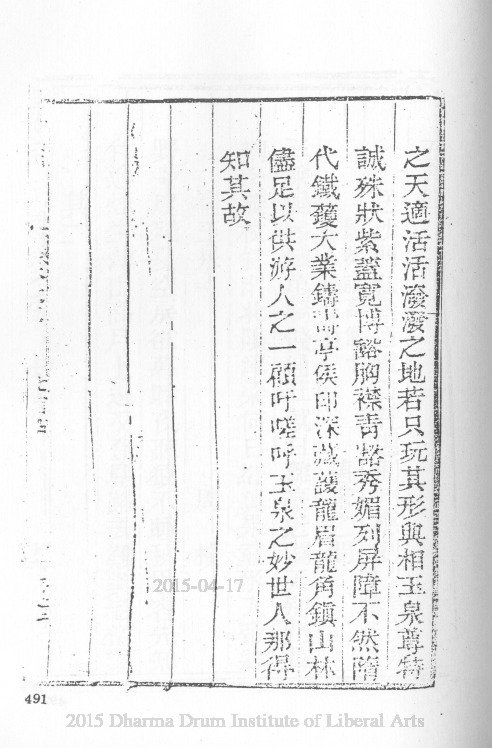 之天適活活潑潑之地若只玩其形與相玉泉尊特
誠殊狀紫蓋寬博豁胸襟青谿秀媚列屏障不然隋
代鐵鑊大業鑄壽亭侯印深藏護龍眉龍角鎮山林
儘足以供游人之一顧吁嗟呼玉泉之妙世人那得
知其故
491
2015-04-17
2015 Dharma Drum Institute of Liberal Arts